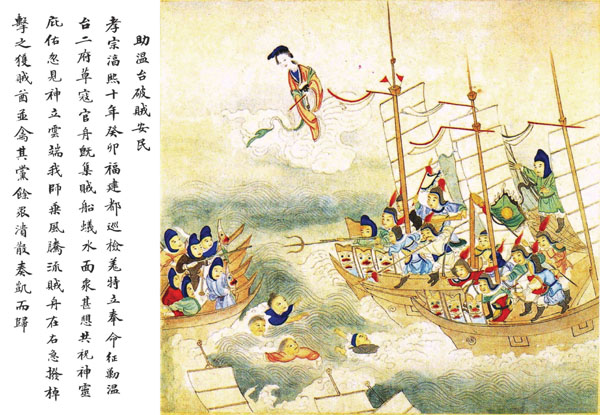 助溫台破賊安民
孝宗淳熙十年癸卯福建都巡檢羗特立奉命征勦溫
台二府草寇官舟既集賊船蟻水面衆甚想共祝神靈
庇佑忽見神立雲端我師乘風騰流賊舟在右急撥棹
擊之獲賊酋並禽其黨餘衆潰散奏凱而歸